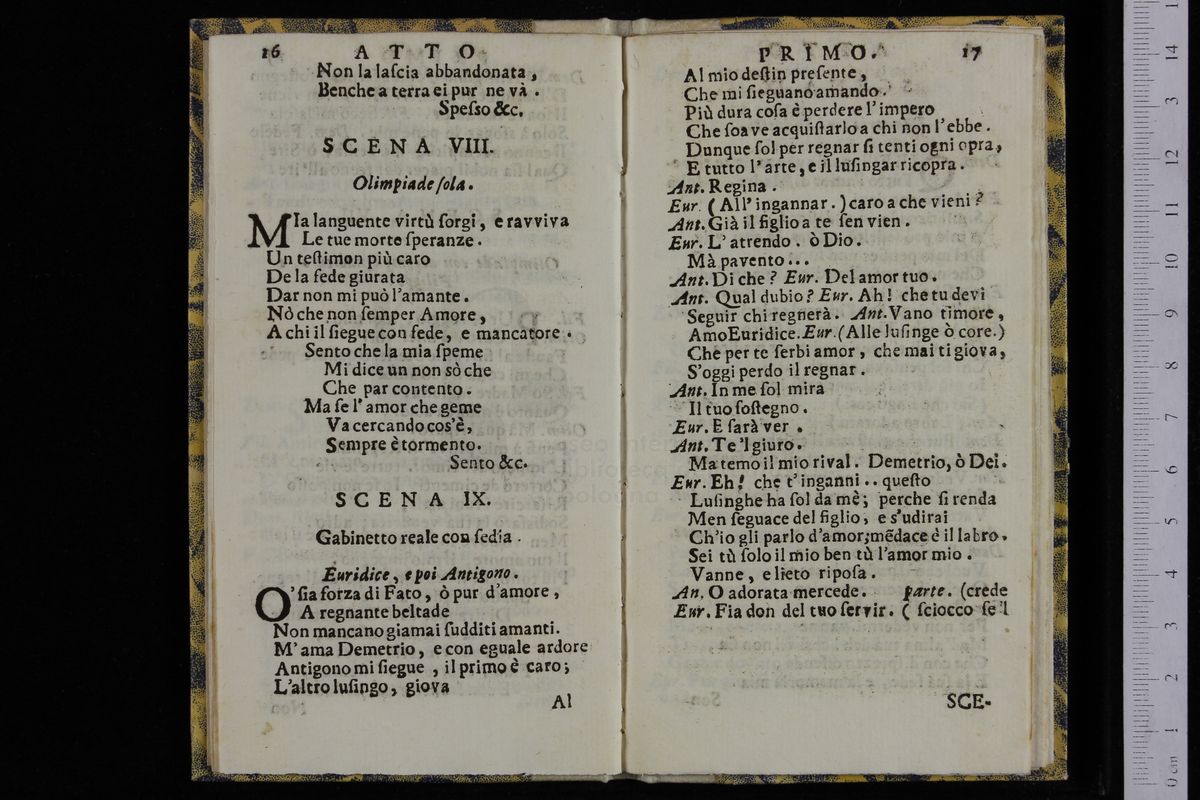 16 ATTO
Non la laſcia abbandonata,
Benche a terra ei pur ne và.
Speſso &c.
SCENA VIII.
Olimpiade ſola.
MIa languente virtù ſorgi, e ravviva
Le tue morte ſperanze.
Un teſtimon più caro
De la fede giurata
Dar non mi può l'amante.
Nò che non ſemper Amore,
A chi il ſiegue con fede, e mancatore.
Sento che la mia ſpeme
Mi dice un non sò che
Che par contento.
Ma ſe l'amor che geme
Va cercando cos'è,
Sempre è tormento.
Sento &c.
SCENA IX.
Gabinetto reale con ſedia.
Euridice, e poi Antigono.
O'ſia forza di Fato, ò pur d'amore,
A regnante beltade
Non mancano giamai ſudditi amanti.
M'ama Demetrio, e con eguale ardore
Antigono mi ſiegue, il primo è caro;
L'altro luſingo, giova
Al
PRIMO. 17
Al mio deſtin preſente,
Che mi ſieguano amando.
Più dura coſa è perdere l'impero
Che ſoave acquiſtarlo a chi non l'ebbe.
Dunque ſol per regnar ſi tenti ogni opra,
E tutto l'arte, e il luſingar ricopra.
Ant. Regina.
Eur. (All'ingannar.) caro a che vieni?
Ant. Già il figlio a te ſen vien.
Eur. L'atrendo. ò Dio.
Mà pavento...
Ant. Di che? Eur. Del amor tuo.
Ant. Qual dubio? Eur. Ah! che tu devi
Seguir chi regnerà. Ant. Vano timore,
Amo Euridice. Eur. (Alle luſinge ò core.)
Che per te ſerbi amor, che mai ti giova,
S'oggi perdo il regnar.
Ant. In me ſol mira
Il tuo ſoſtegno.
Eur. E ſarà ver.
Ant. Te'l giuro.
Ma temo il mio rival. Demetrio, ò Dei.
Eur. Eh! che t'inganni.. queſto
Luſinghe ha ſol da mè; perche ſi renda
Men ſeguace del figlio, e s'udirai
Ch'io gli parlo d'amor; mẽdace è il labro.
Sei tù ſolo il mio ben tù l'amor mio.
Vanne, e lieto ripoſa.
An. O adorata mercede. parte. (crede
Eur. Fia don del tuo ſervir. (ſciocco ſe'l
SCE-